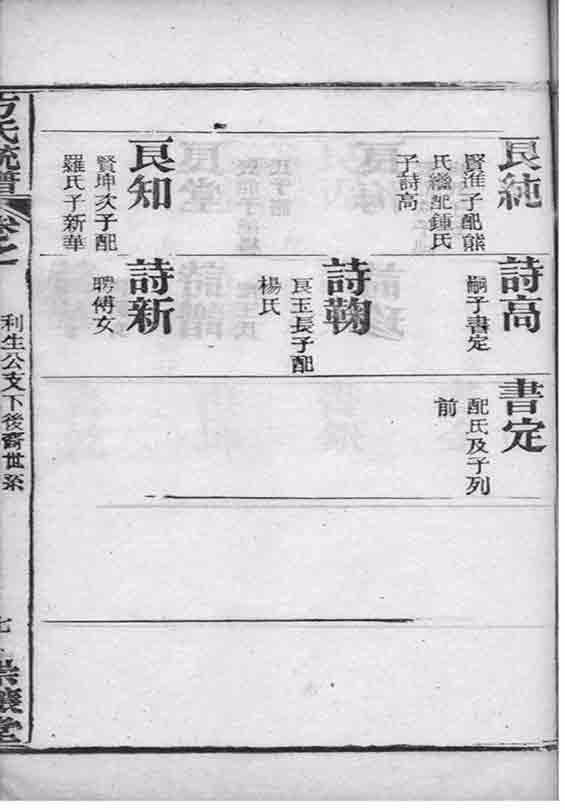 良純
賢淮子配熊
氏繼配鍾氏
子詩高
詩高
嗣子書定
書定
配氏及子列
前
詩鞠
良玉長子配
楊氏
良知
賢坤次子配
羅氏子新華
詩新
聘傅女
方氏統譜
卷之
利生公支下後裔世系
七
堂